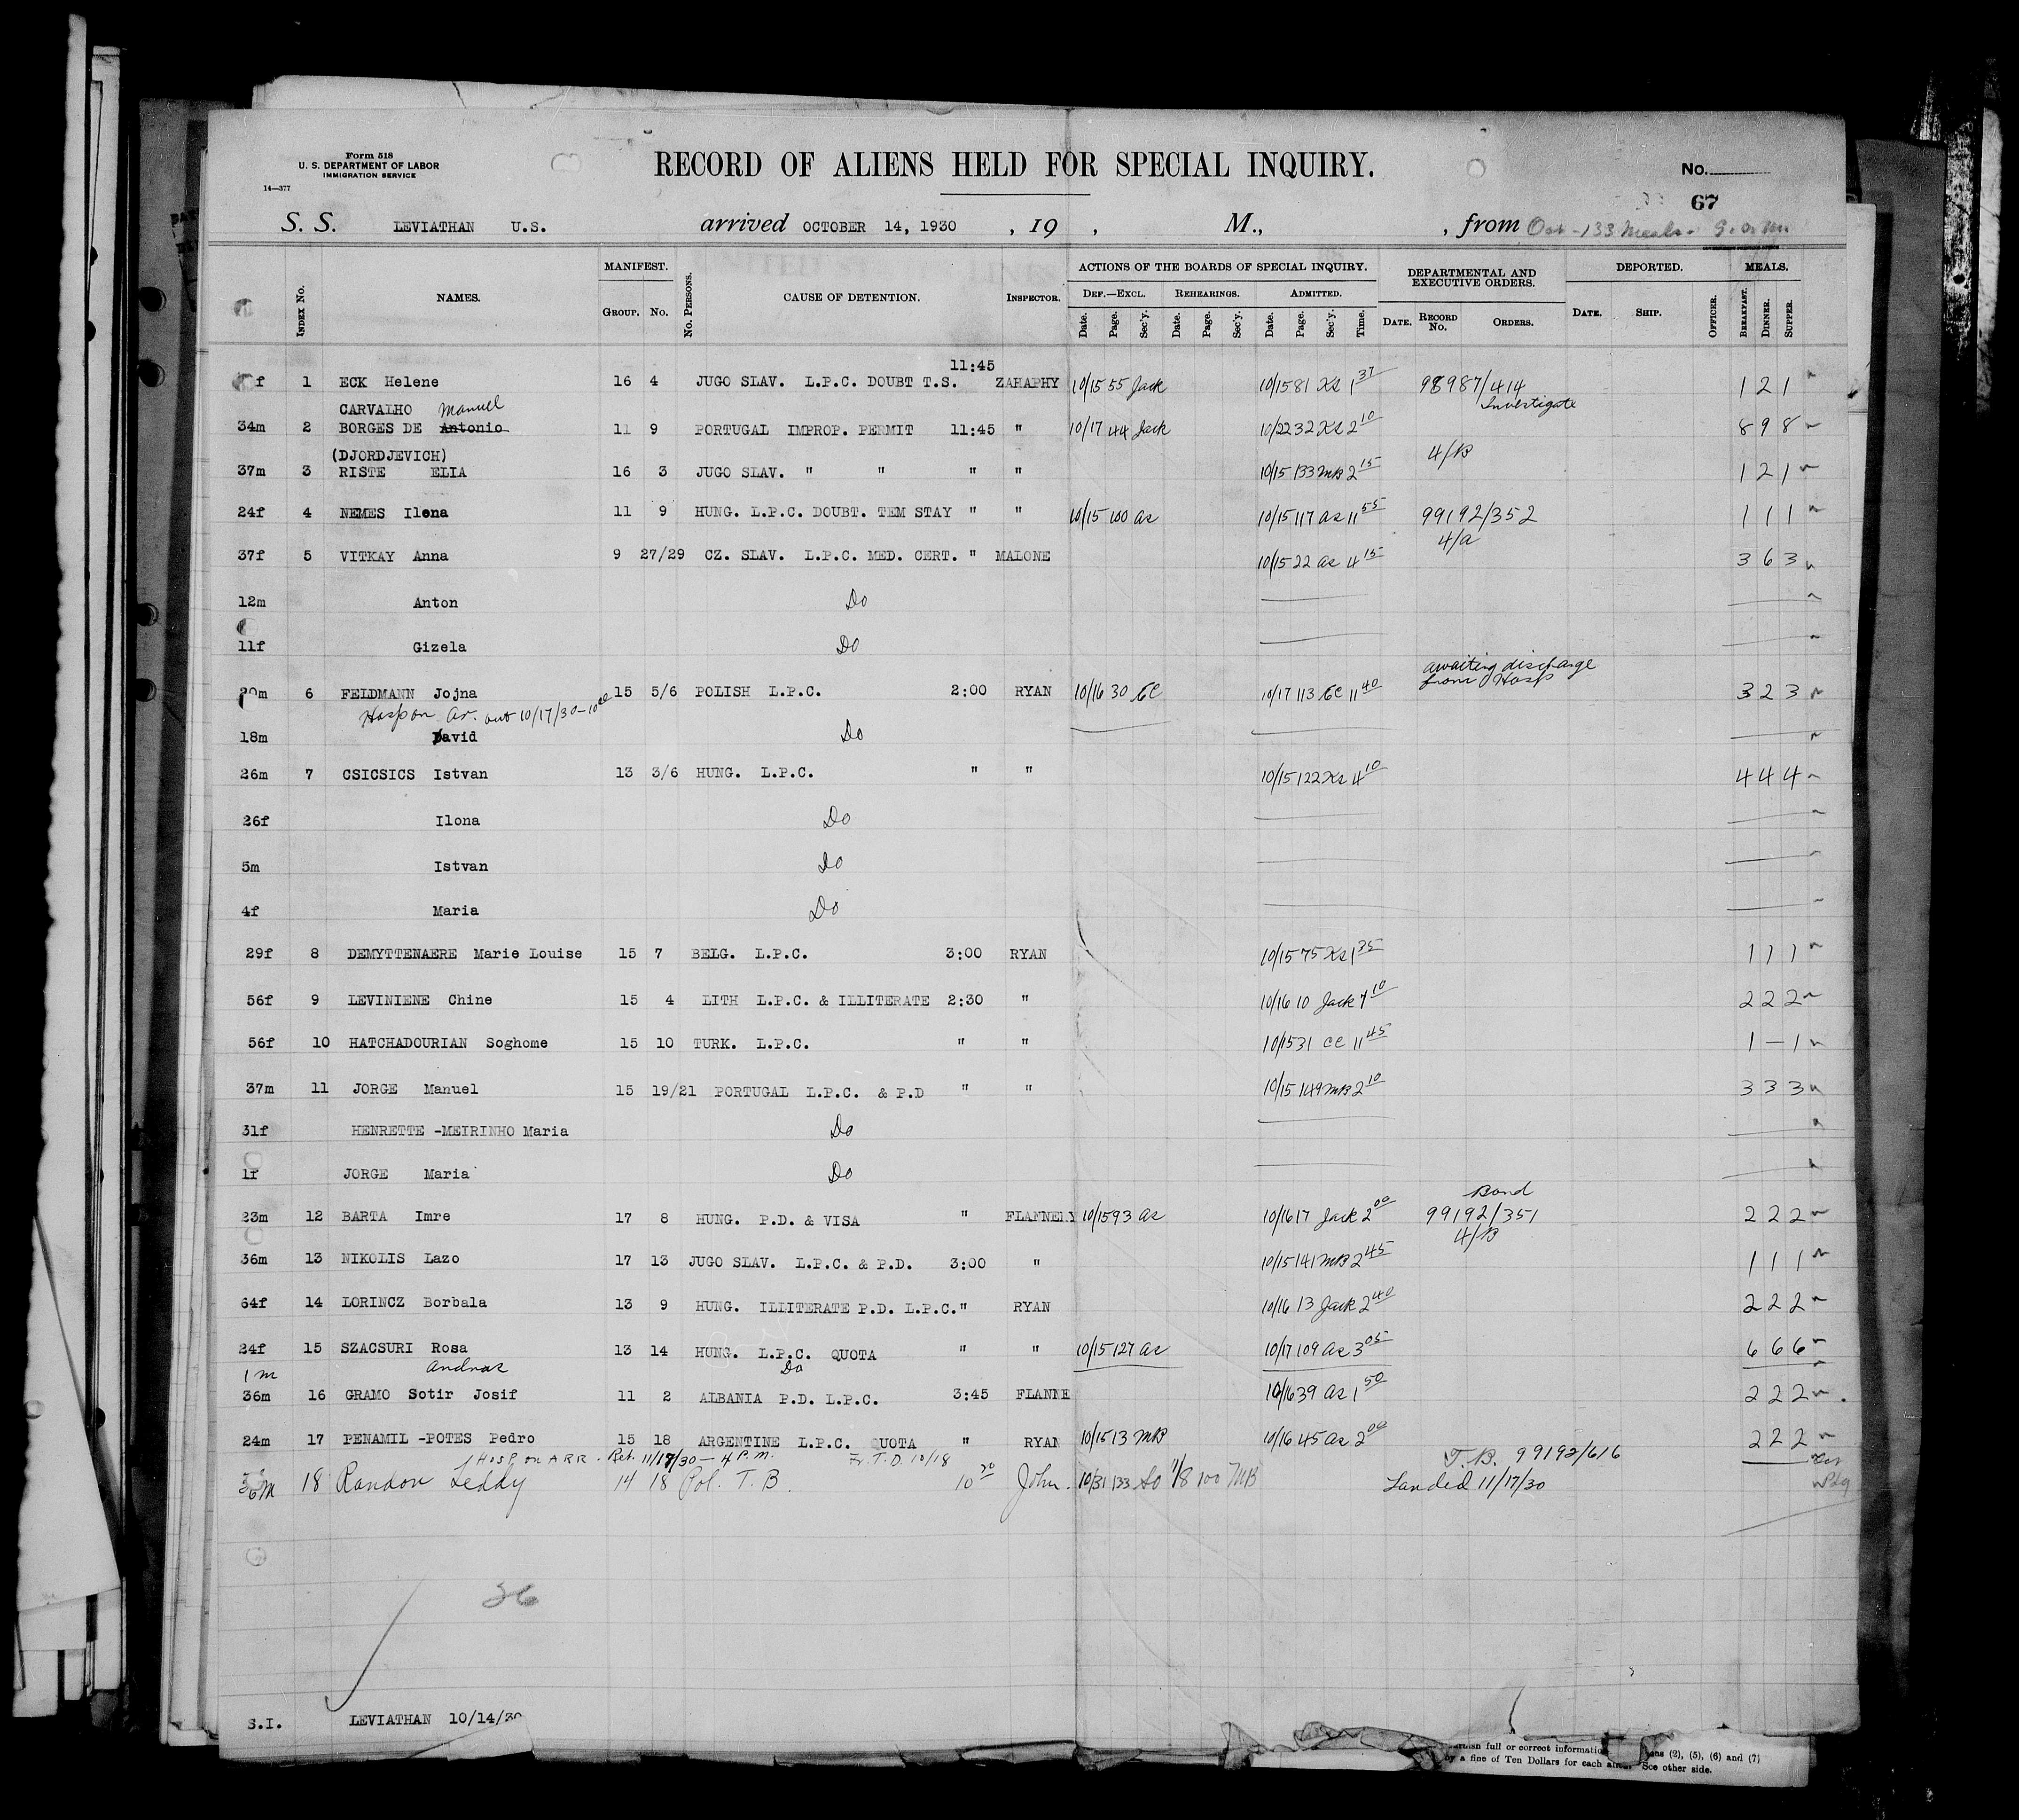 Form 518
U. S. DEPARTMENT OF LABOR
IMMIGRATION SERVICE
14—377
RECORD OF ALIENS HELD FOR SPECIAL INQUIRY.
No.
67
S. S. LEVIATHAN U.S. arrived OCTOBER 14, 1930 , 19 , M., , from Oct - 133 Meals -
INDEX No. NAMES. MANIFEST. GROUP. No. No. PERSONS. CAUSE OF DETENTION. INSPECTOR. ACTIONS OF THE BOARDS OF SPECIAL INQUIRY. DEF.—EXCL. Date. Page. Sec'y. REHEARINGS. Date. Page. Sec'y. ADMITTED. Date. Page. Sec'y. Time. DEPARTMENTAL AND EXECUTIVE ORDERS. DATE. RECORD No. ORDERS. DEPORTED. DATE. SHIP. OFFICER. MEALS. BREAKFAST. DINNER. SUPPER.
11:45
f 1 ECK Helene 16 4 JUGO SLAV. L.P.C. DOUBT T.S. ZAHAPHY 10/15 55 Jack 10/15 81 Ks 1 37 98987/414 1 2 1
Investigate
CARVALHO Manuel
34m 2 BORGES DE Antonio 11 9 PORTUGAL IMPROP. PERMIT 11:45 " 10/17 44 Jack 10/22 32 Ks 2 10 8 9 8
(DJORDJEVICH) 4/B
37m 3 RISTE ELIA 16 3 JUGO SLAV. " " " " 10/15 133 MB 2 15 1 2 1
24f 4 NEMES Ilona 11 9 HUNG. L.P.C. DOUBT. TEM STAY " " 10/15 100 as 10/15 117 as 11 55 99192/352 1 1 1
4/a
37f 5 VITKAY Anna 9 27/29 CZ. SLAV. L.P.C. MED. CERT. " MALONE 10/15 22 as 4 15 3 6 3
12m Anton Do
11f Gizela Do
awaiting discharge
from Hosp
20m 6 FELDMANN Jojna 15 5/6 POLISH L.P.C. 2:00 RYAN 10/16 30 CC 10/17 113 CC 11 40 3 2 3
Hosp on Ar. out 10/17/30 - 10
18m David Do
26m 7 CSICSICS Istvan 13 3/6 HUNG. L.P.C. " " 10/15 122 Ks 4 10 4 4 4
26f Ilona Do
5m Istvan Do
4f Maria Do
29f 8 DEMYTTENAERE Marie Louise 15 7 BELG. L.P.C. 3:00 RYAN 10/15 75 Ks 1 35 1 1 1
56f 9 LEVINIENE Chine 15 4 LITH L.P.C. & ILLITERATE 2:30 " 10/16 10 Jack 1 10 2 2 2
56f 10 HATCHADOURIAN Soghome 15 10 TURK. L.P.C. " " 10/15 31 CC 11 45 1 — 1
37m 11 JORGE Manuel 15 19/21 PORTUGAL L.P.C. & P.D " " 10/15 149 MB 2 10 3 3 3
31f HENRETTE -MEIRINHO Maria Do
1f JORGE Maria Do
Bond
23m 12 BARTA Imre 17 8 HUNG. P.D. & VISA " FLANNERY 10/15 93 as 10/16 17 Jack 2 00 99192/351 2 2 2
4/B
36m 13 NIKOLIS Lazo 17 13 JUGO SLAV. L.P.C. & P.D. 3:00 " 10/15 141 MB 2 45 1 1 1
64f 14 LORINCZ Borbala 13 9 HUNG. ILLITERATE P.D. L.P.C. " RYAN 10/16 13 Jack 2 40 2 2 2
24f 15 SZACSURI Rosa 13 14 HUNG. L.P.C. QUOTA " " 10/15 127 as 10/17 109 as 3 05 6 6 6
1m Andras Do
36m 16 GRAMO Sotir Josif 11 2 ALBANIA P.D. L.P.C. 3:45 FLANNE 10/16 39 as 1 50 2 2 2
24m 17 PENAMIL -POTES Pedro 15 18 ARGENTINE L.P.C. QUOTA " RYAN 10/15 13 MB 10/16 45 as 2 00 2 2 2
Hosp. on ARR. Ret. 11/17/30 — 4 P.M. Fr. T.D. 10/18 T.B. 99192/616
36m 18 Randon Leddy 14 18 Pol. T.B. 10 30 John. 10/31 133 So 11/8 100 MB Landed 11/17/30
36
S.I. LEVIATHAN 10/14/30
full or correct information (2), (5), (6) and (7)
by a fine of Ten Dollars for each alien. See other side.